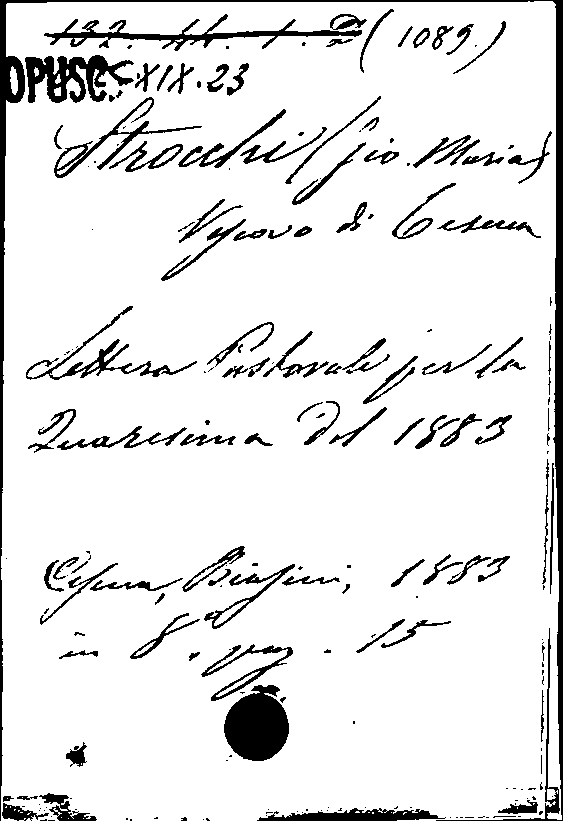 132. 44. 1. (1089.)
OPUSC. XIX.23
Strocchi (Gio. Maria)
Vescovo di Cesena
Lettera Pastorale per la
Quaresima del 1883
Cesena, Biasini, 1883
in 8° pag. 15